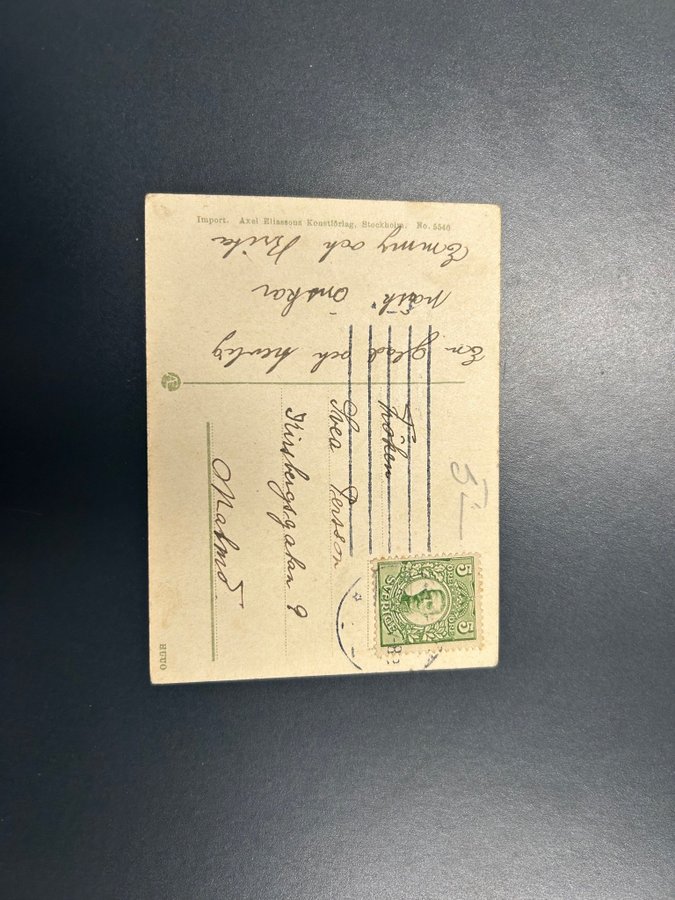 Import. Axel Eliassons Konstförlag, Stockholm. No. 5546
En glad och herlig
påsk önskar
Emmy och Brita
5 ÖRE ÖRE 5
SVERIGE
Fröken
Svea Persson
Kirsbergsgatan 9
Malmö.